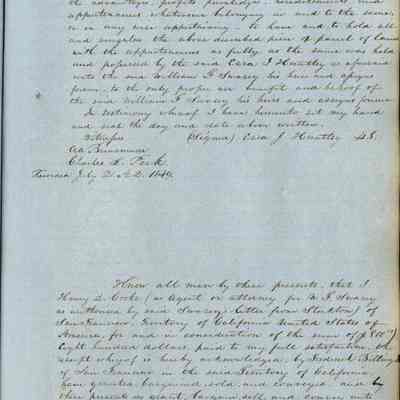 the advantages, profits privileges, hereditaments and
appurtenances whatsoever belonging as and to the same,
or in any wise appertaining. To have and to hold all
and singular the above described piece or parcel of Land
with the appurtenances as fully as the same was held
and possessed by the said Ezra J Huntley as aforesaid
unto the said William F Swasey his heirs and assigns
forever, to the only proper use benefit and behoof of
the said William F Swasey his heirs and assigns forever
In testimony whereof I have hereunto set my hand
and seal the day and date above written.
Witness (Signed) Ezra J. Huntley
Charles L. Peck
July 2. 1849
Know all men by these presents, that I
Henry D. Cooke (as Agent or attorney for W. F. Swasey
as authorized by said Swasey's letter from Stockton) of
San Francisco, Territory of California United States of
America, for and in consideration of the sum of
Eight hundred dollars, paid to my full satisfaction, the
receipt whereof is hereby acknowledged, by Frederick Billings
of San Francisco in the said Territory of California,
have granted, bargained, sold, and conveyed and by
these presents do grant, bargain, sell, and convey unto